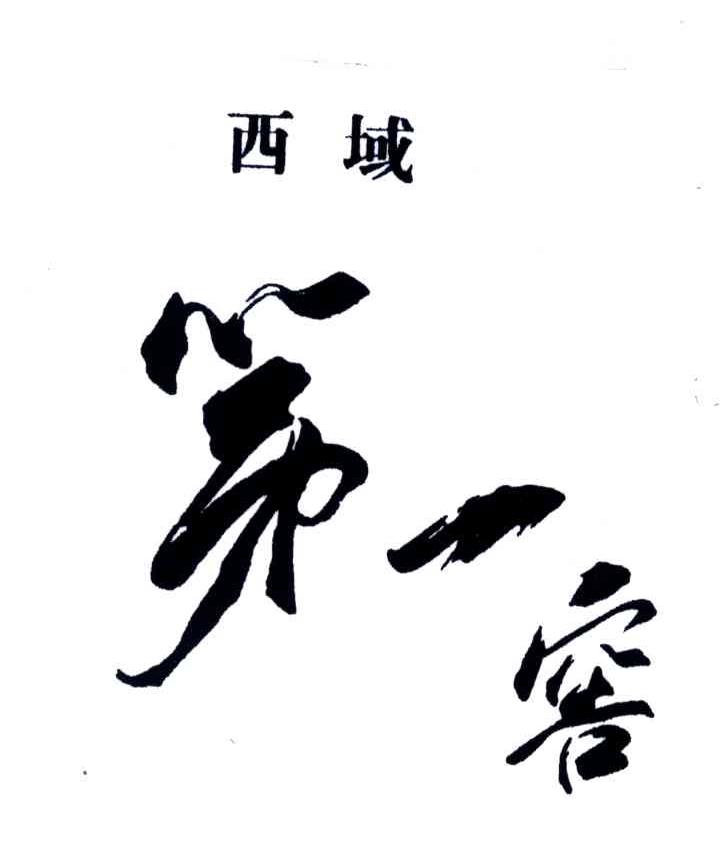 西域
第一窖